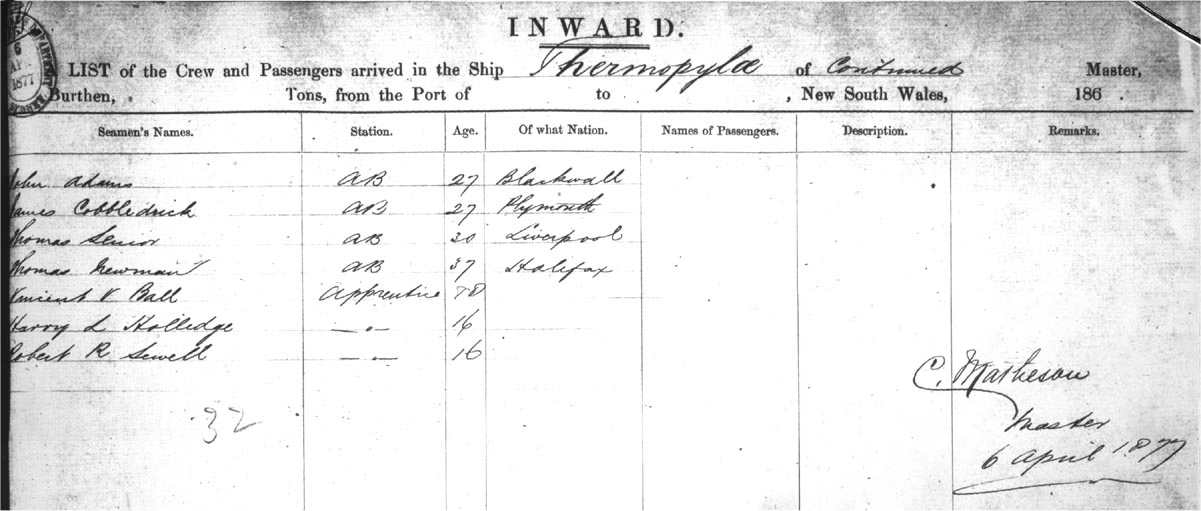 6
1877
INWARD.
LIST of the Crew and Passengers arrived in the Ship Thermopylæ of Continued Master,
Burthen, Tons, from the Port of to , New South Wales, 186 .
Seamen's Names. Station. Age. Of what Nation. Names of Passengers. Description. Remarks.
John Adams AB 27 Blackwall
James Cobbledick AB 27 Plymouth
Thomas Senior AB 30 Liverpool
Thomas Newman AB 37 Halifax
Vincent V Ball Apprentice 18
Harry L Holledge — " — 16
Robert R Sewell — " — 16
32
C. Matheson
Master
6 April 1877